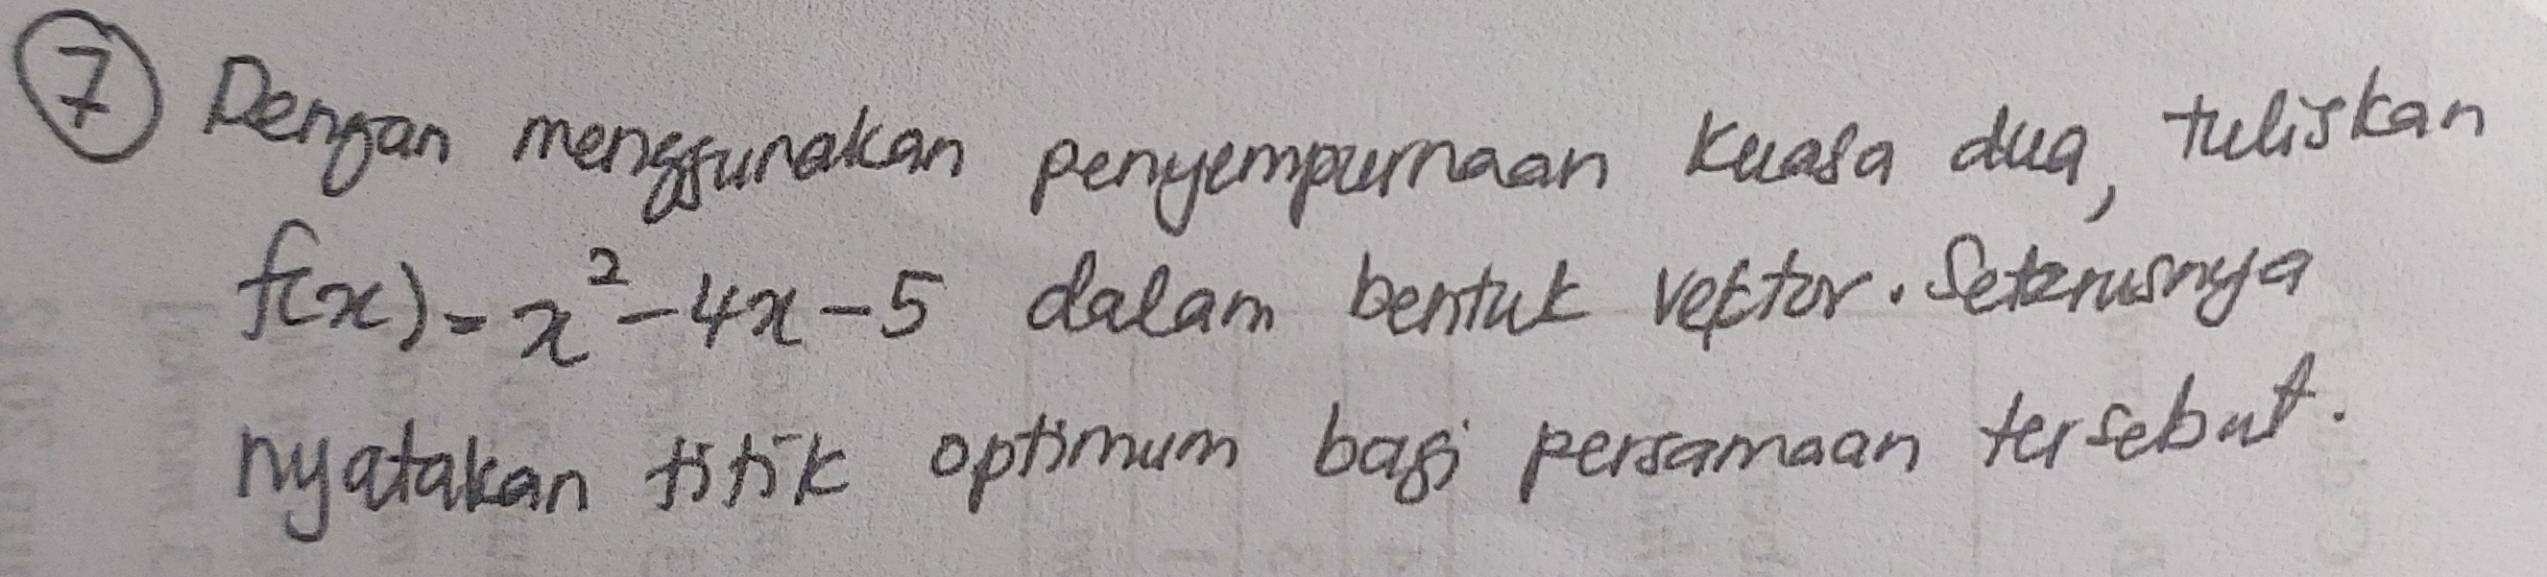 7 Dengan menggunakan penyempurnaan kuasa dua, tuliskan
f(x) = x² - 4x - 5 dalam bentuk vektor. Seterusnya
nyatakan titik optimum bagi persamaan tersebut.